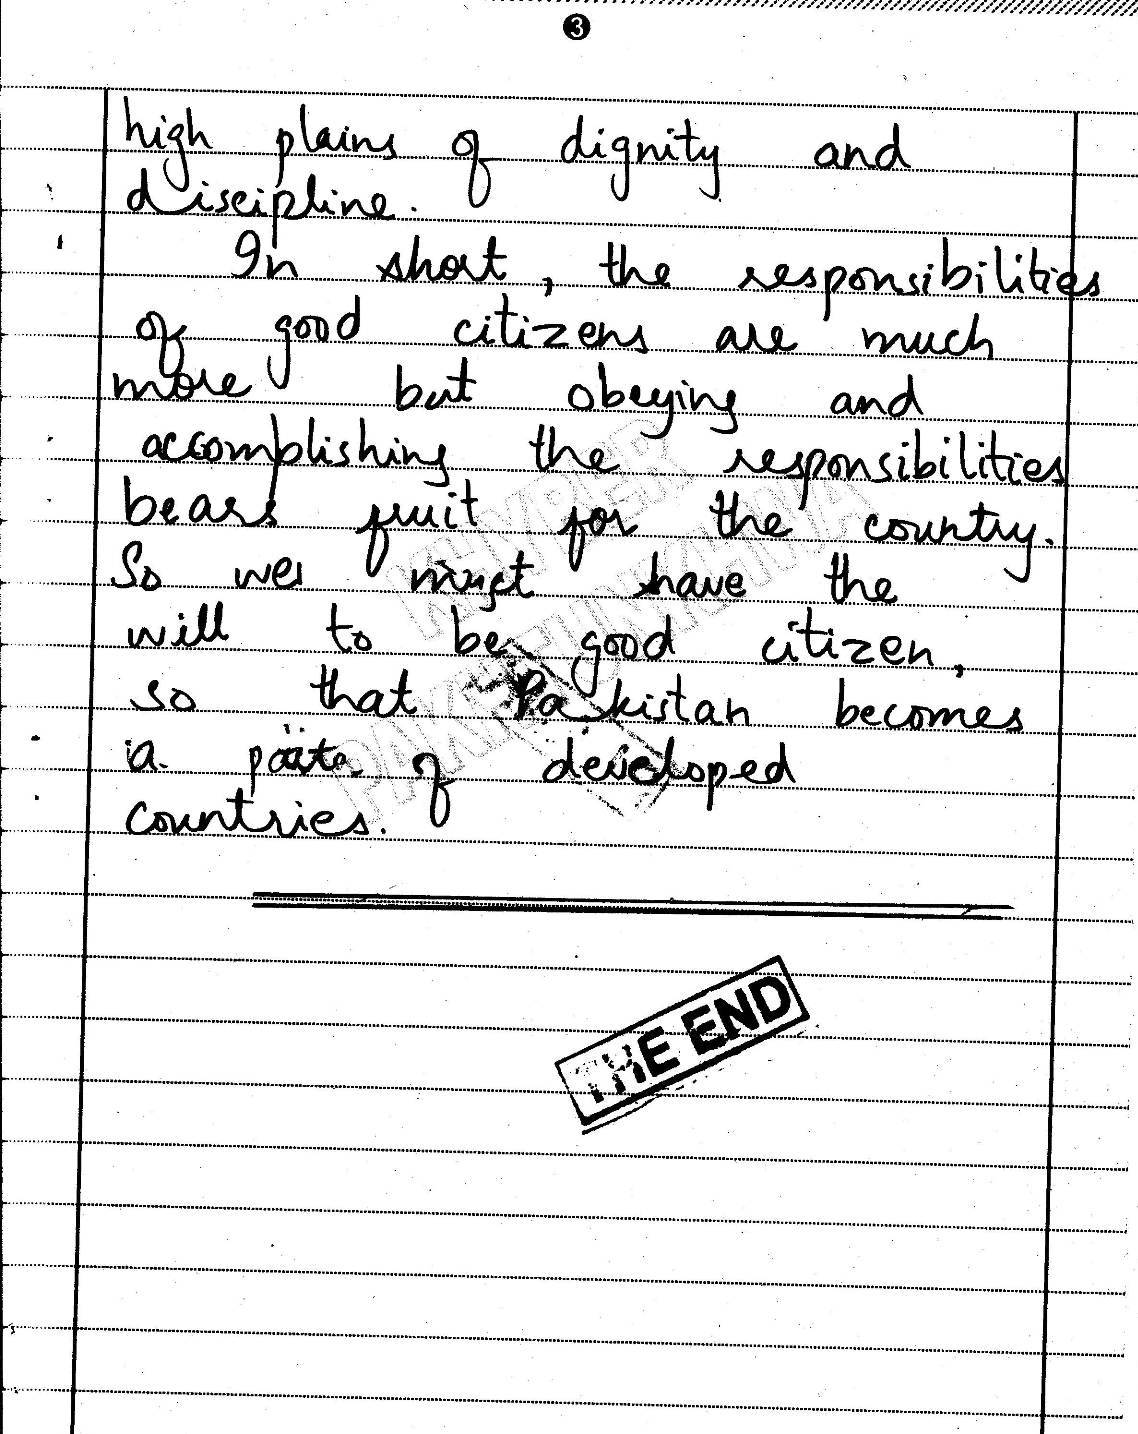 3
high plains of dignity and
discipline.
In short, the responsibilities
of good citizens are much
more but obeying and
accomplishing the responsibilities
bears fruit for the country.
So we must have the
will to be good citizen,
so that Pakistan becomes
a part of developed
countries.
KHYBER
PAKHTUNKHWA
THE END